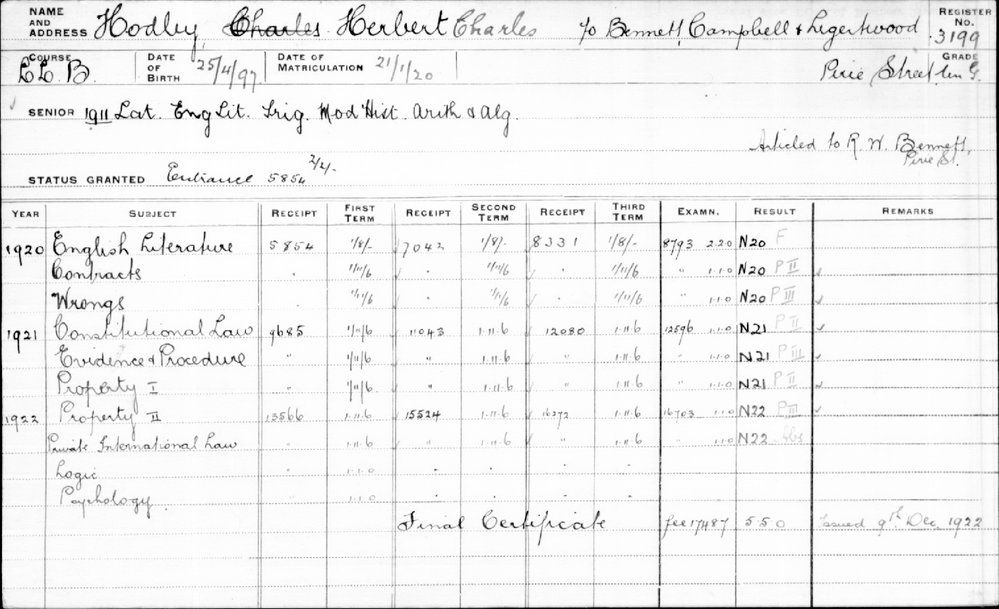 NAME AND ADDRESS Hodby, Charles Herbert Charles c/o Bennett, Campbell & Ligertwood REGISTER No. 3199
COURSE LL.B. DATE OF BIRTH 25/4/97 DATE OF MATRICULATION 21/1/20 Pirie Street GRADE
SENIOR 1911 Lat. Eng Lit. Trig. Mod Hist. Arith & Alg.
Articled to R. W. Bennett,
Pirie St.
STATUS GRANTED Entrance 5854 2/2/-
YEAR SUBJECT RECEIPT FIRST TERM RECEIPT SECOND TERM RECEIPT THIRD TERM EXAMN. RESULT REMARKS
1920 English Literature 5854 1/8/- 7042 1/8/- 8331 1/8/- 8793 2.2.0 N20 F
Contracts " 1/11/6 " 1/11/6 " 1/11/6 " 1.1.0 N20 P II
Wrongs " 1/11/6 " 1/11/6 " 1/11/6 " 1.1.0 N20 P III
1921 Constitutional Law 9685 1/11/6 11043 1.11.6 12080 1.11.6 12596 1.1.0 N21 P II
Evidence & Procedure " 1/11/6 " 1.11.6 " 1.11.6 " 1.1.0 N21 P III
Property I " 1/11/6 " 1.11.6 " 1.11.6 " 1.1.0 N21 P II
1922 Property II 13566 1.11.6 15524 1.11.6 16272 1.11.6 16703 1.1.0 N22 P III
Private International Law " 1.11.6 " 1.11.6 " 1.11.6 " 1.1.0 N22 Abs
Logic " 1.1.0
Psychology " 1.1.0
Final Certificate fee 17487 5 5 0 Issued 9th Dec. 1922